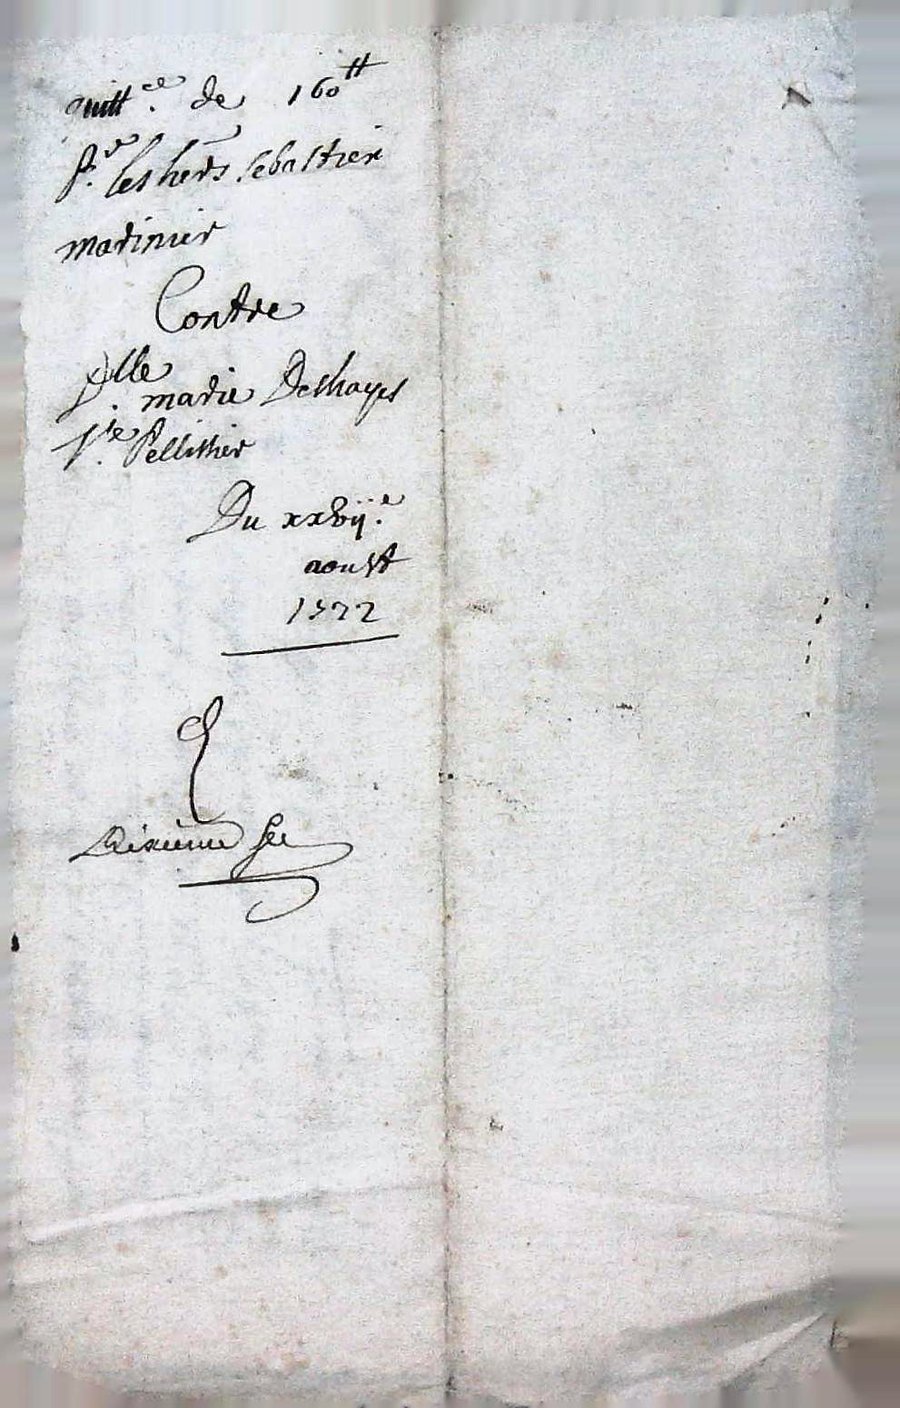 quittce. de 160tt
pr. les hers sebastien
marinier
Contre
Dlle marie Deshayes
Ve. Pellithier
Du xxvije.
aoust
1722